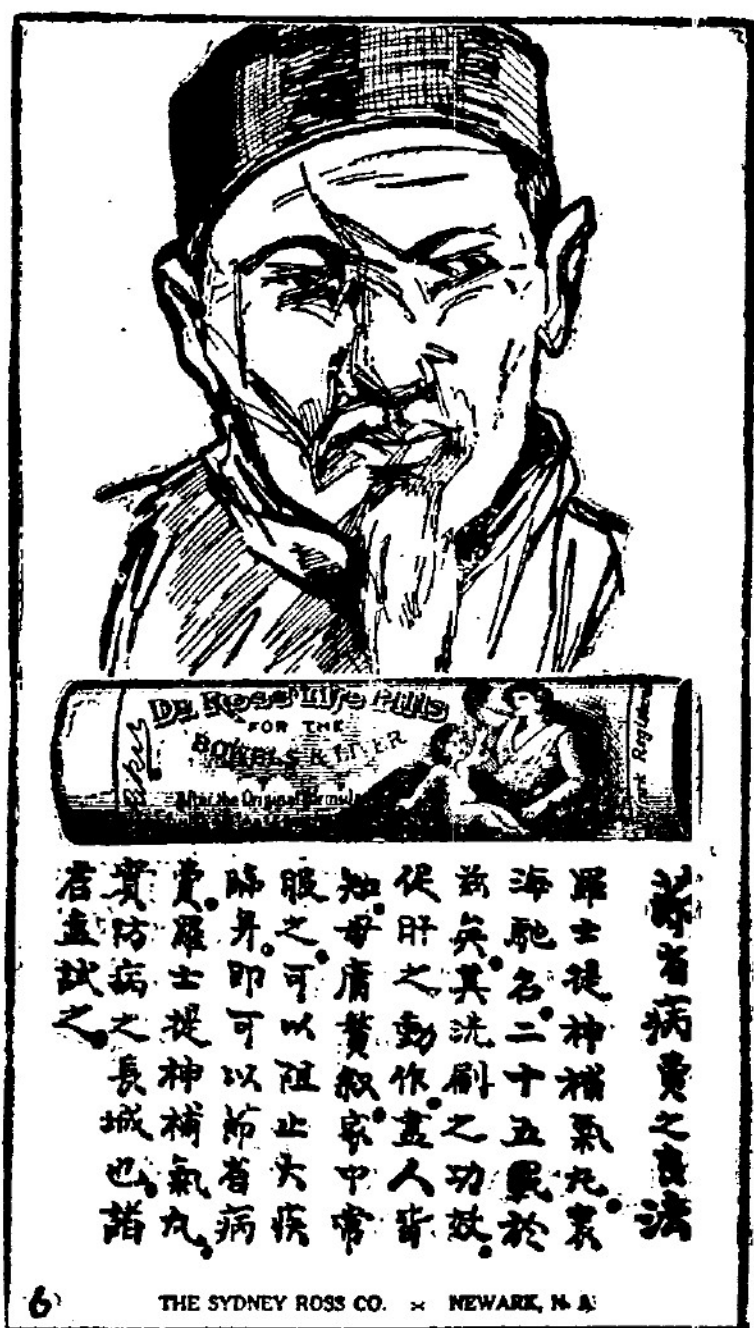 Dr. Ross' Life Pills
FOR THE
BOWELS & LIVER
After the Original Formula
節省病費之良法
羅士提神補氣丸。寰
海馳名。二十五於
茲矣。其洗刷之功效。
促肝之動作。盡人皆
知。毋庸贅叙。家中常
服之。可以阻止大疾
臨身。即可以節省病
費。羅士提神補氣丸。
實防病之長城也。諸
君盍試之。
6
THE SYDNEY ROSS CO. × NEWARK, N. J.